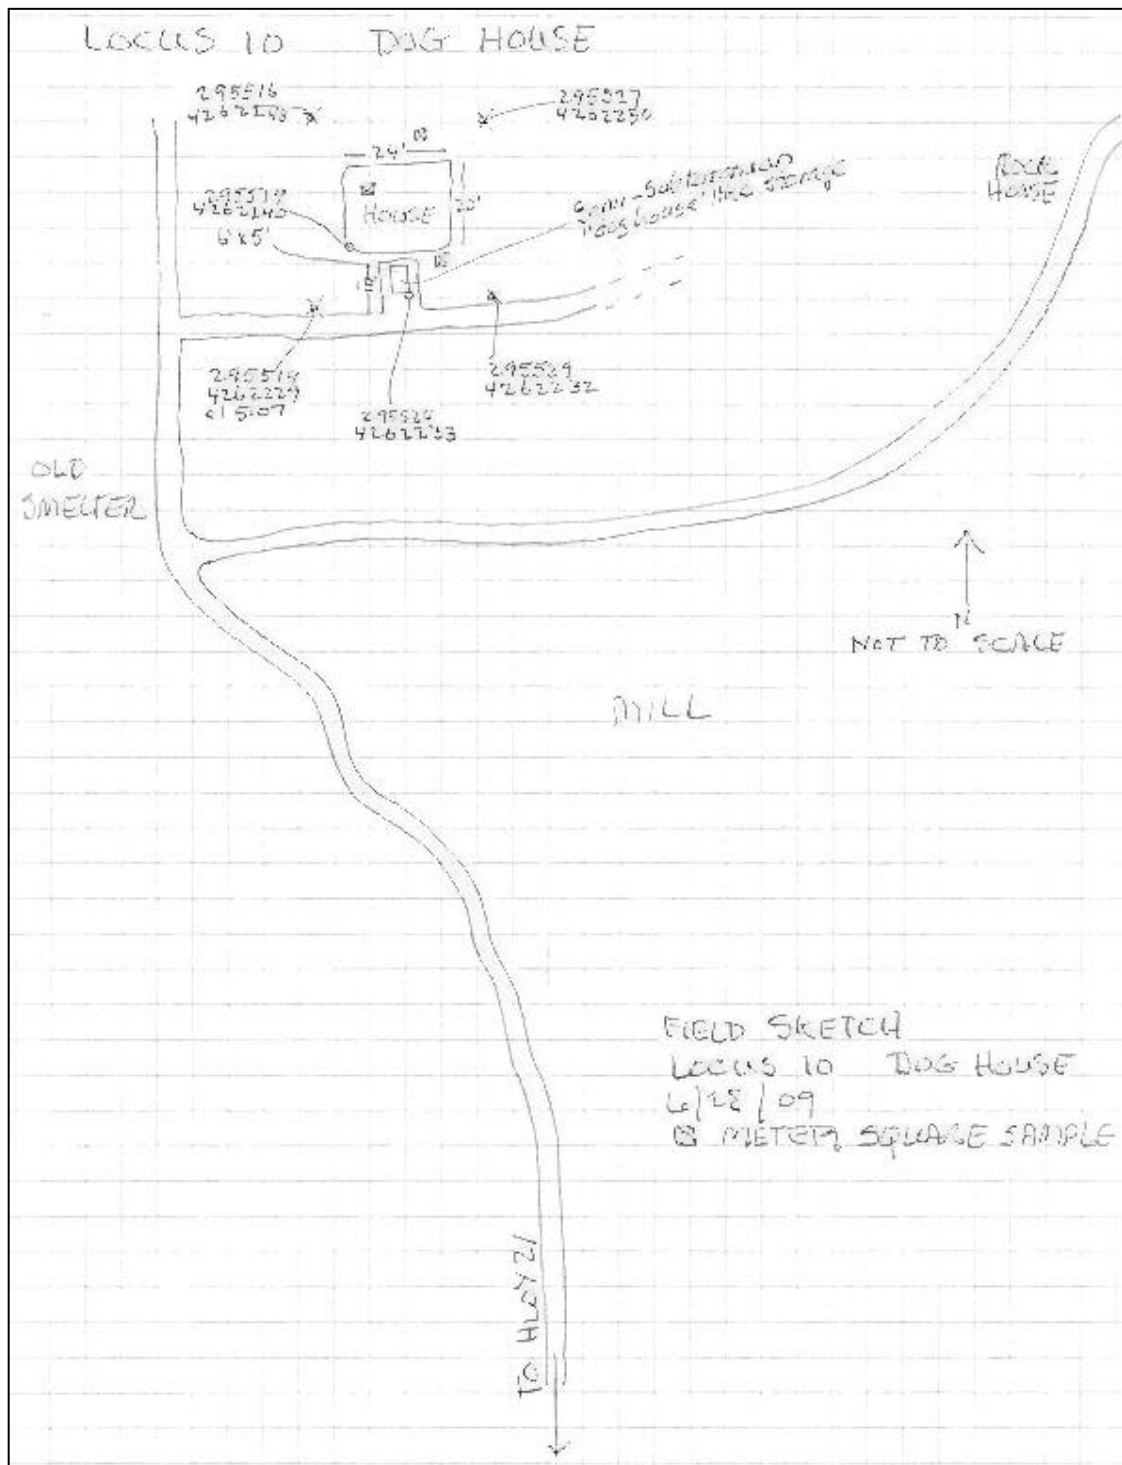 LOCUS 10 DOG HOUSE
295516
295527
4262250
24'
20'
HOUSE
295519
4262240
6'x5'
semi-subterranean
"doghouse" like storage
ROCK
HOUSE
295519
4262229
el 5107
295529
4262232
295525
4262233
OLD
SMELTER
N
NOT TO SCALE
MILL
FIELD SKETCH
LOCUS 10 DOG HOUSE
6/28/09
METER SQUARE SAMPLE
TO HWY 21